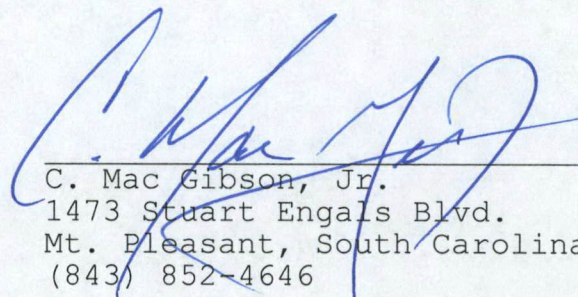 C. Mac Gibson, Jr.
1473 Stuart Engals Blvd.
Mt. Pleasant, South Carolina
(843) 852-4646